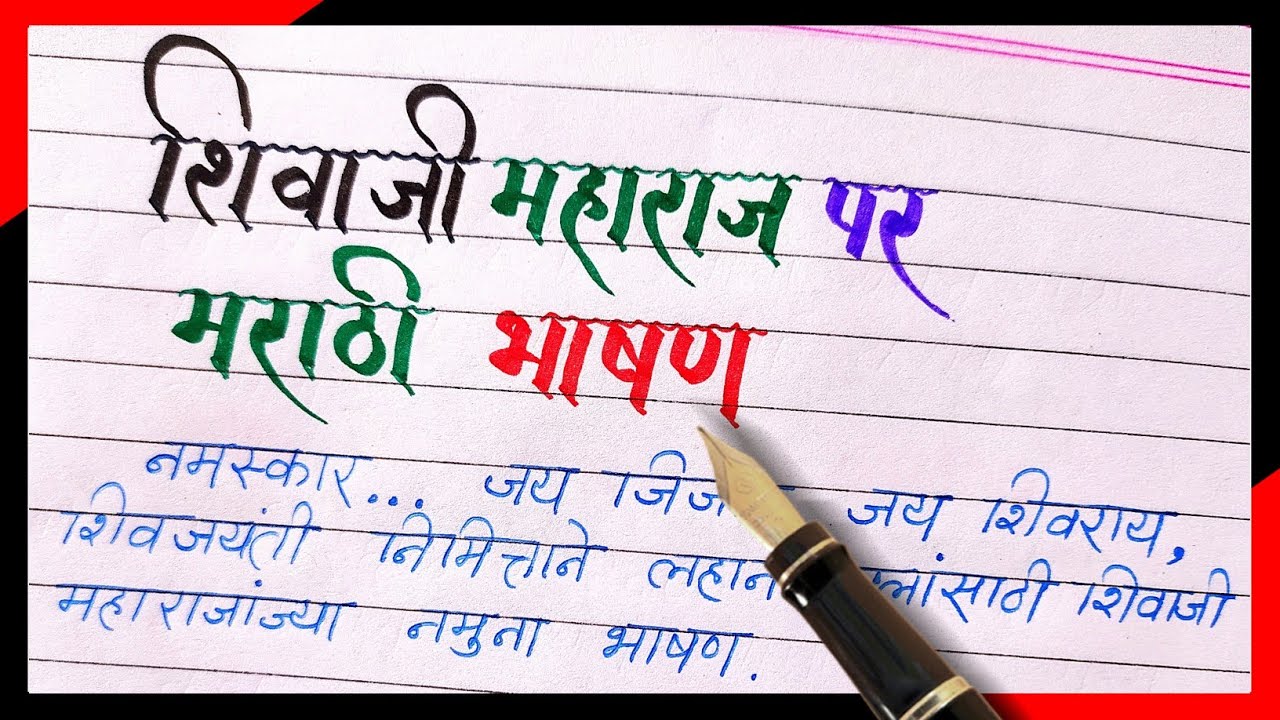 शिवाजी महाराज पर
मराठी भाषण
नमस्कार... जय जय शिवराय,
शिवजयंती निमित्ताने लहान शिवाजी
महाराजांज्या नमुना भाषण.